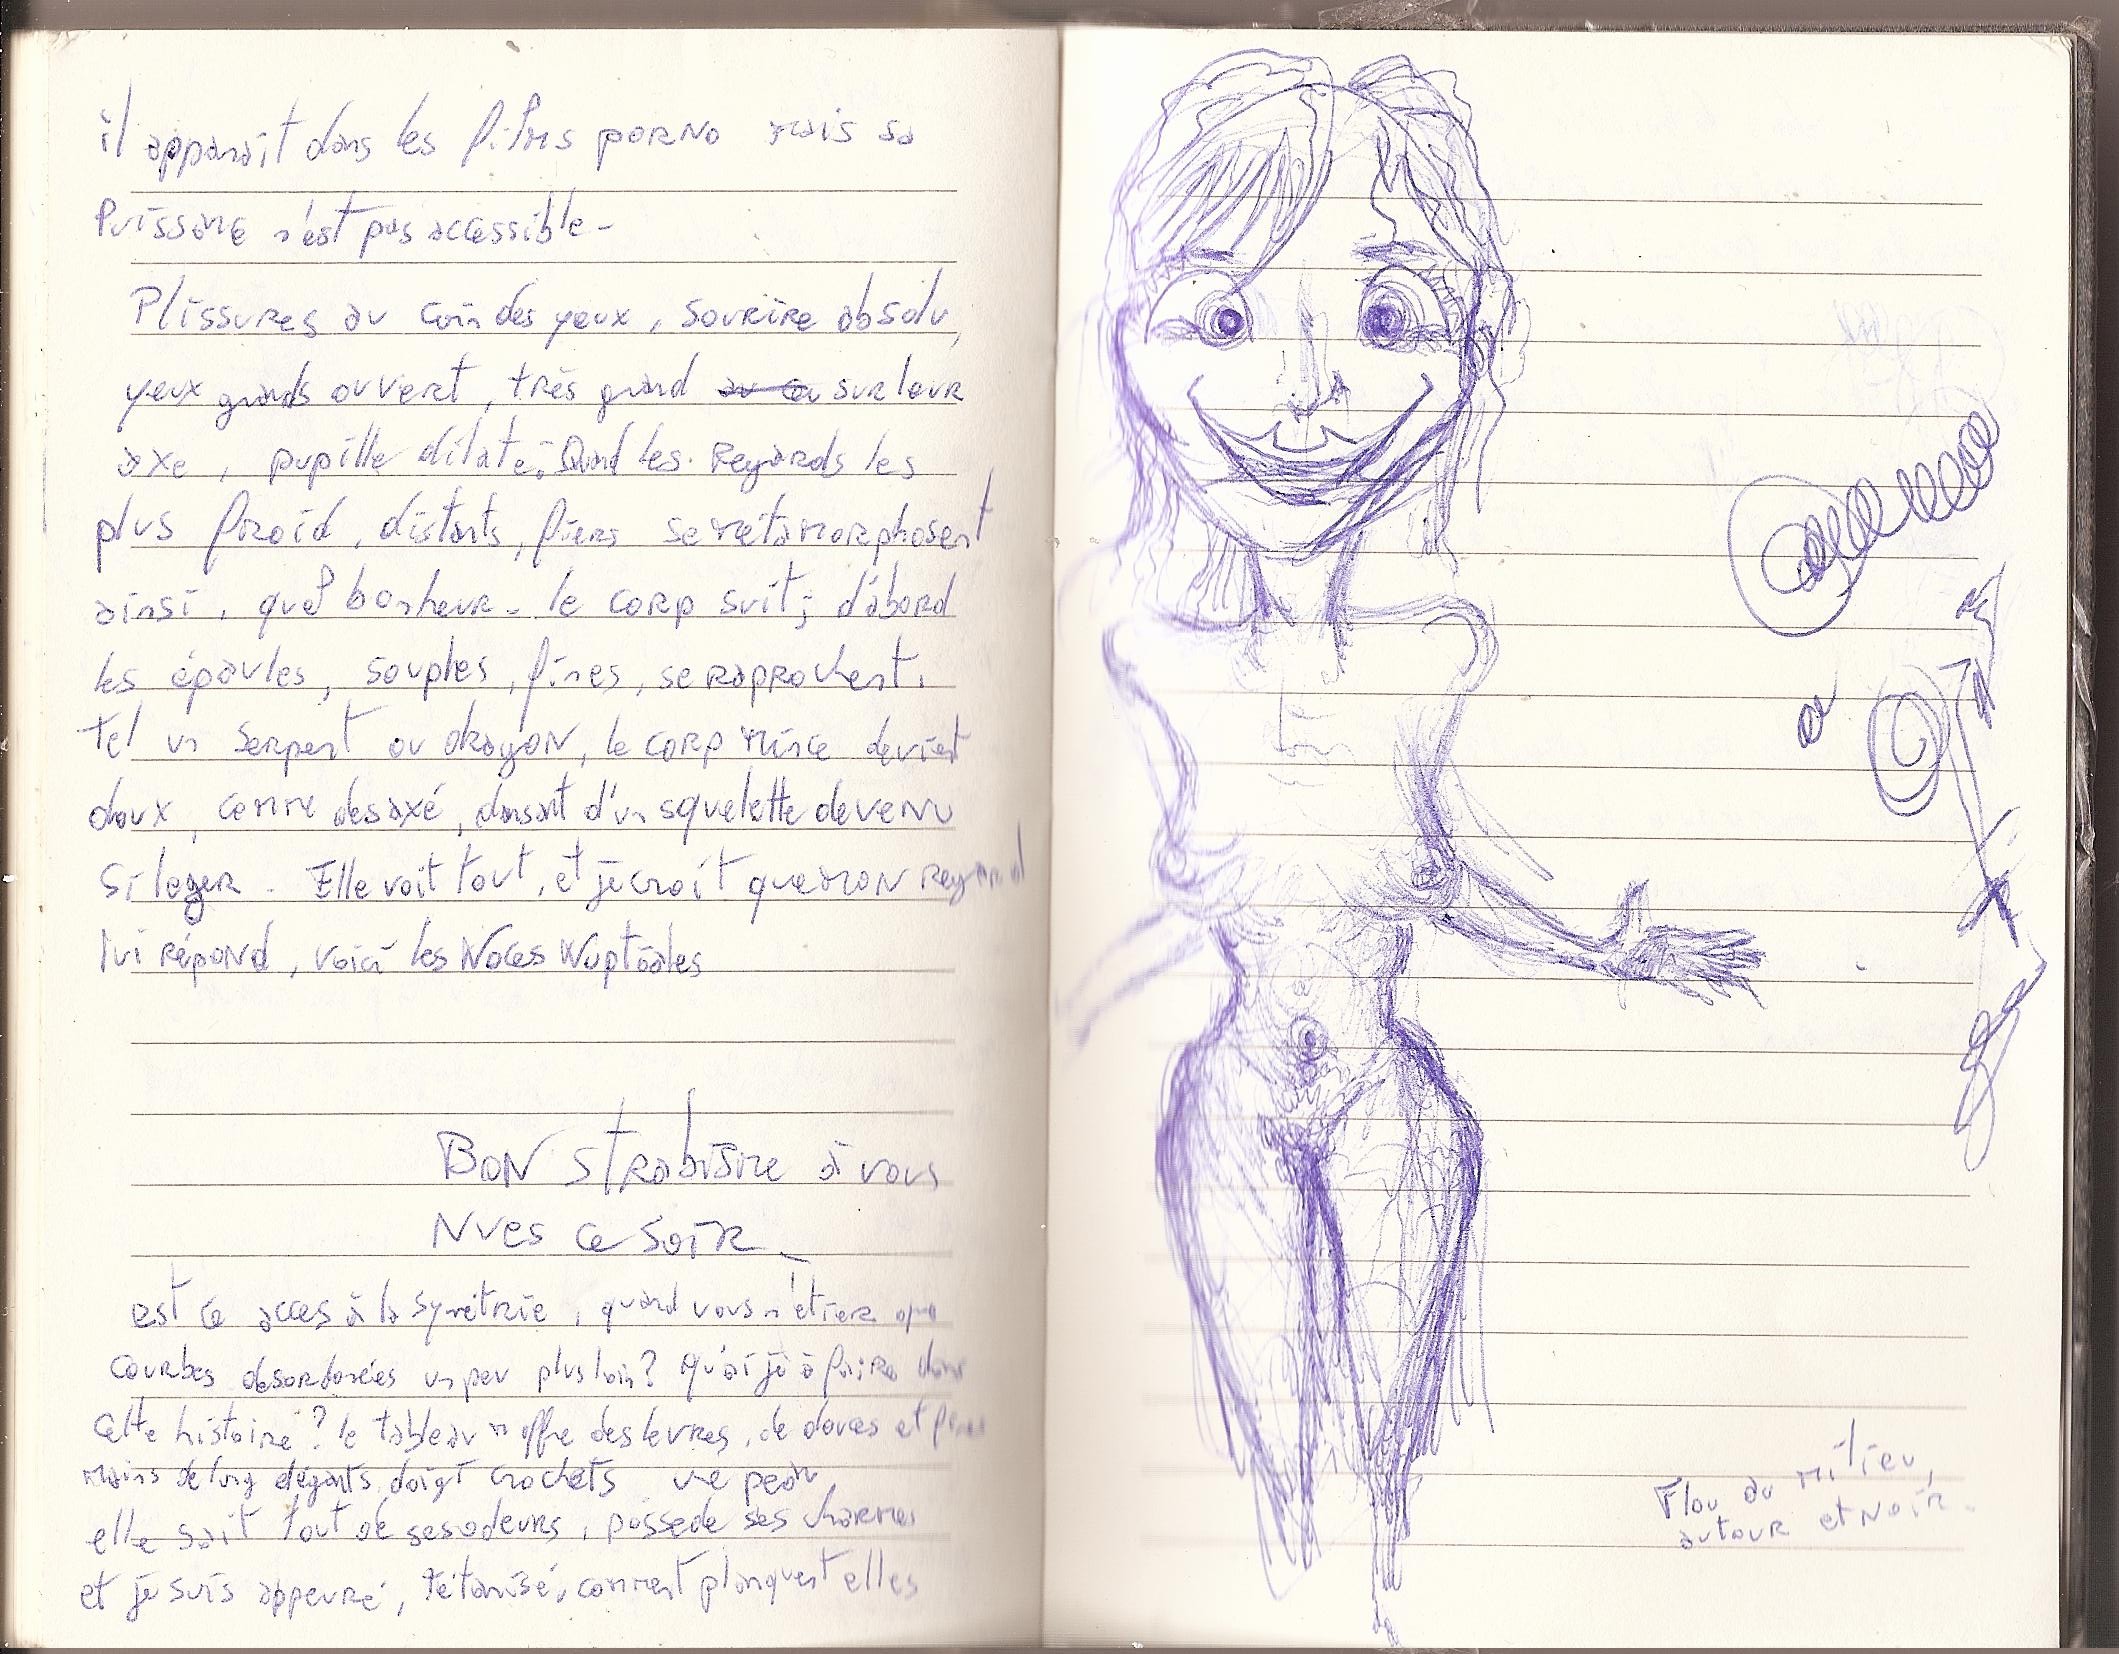 il apparait dans les films porno mais sa
Puissance n'est pas accessible-
Plissures au coin des yeux, sourire absolu,
yeux grands ouvert, très grand sur leur
axe, pupille dilaté, Quand les regards les
plus froid, distants, fiers se métamorphosent
ainsi, quel bonheur. le corp suit; d'abord
les épaules, souples, fines, se raprochent.
tel un serpent ou dragon, le corp mince devient
doux, comme desaxé, dansant d'un squelette devenu
si leger. Elle voit tout, et je croit que mon regard
lui répond, voici les Noces Nuptiales
Bon strabisme à vous
Nues ce soir_
est ce acces à la symétrie, quand vous n'étiez que
courbes désordonées un peu plus loin? qu'ai je à faire dans
cette histoire? le tableau m'offre des levres, de douces et fines
mains de long élégants doigt crochets une peau
elle sait tout de ses odeurs, possede ses charmes
et je suis appeuré, tétanisé, comment planquent elles
ou
Flou au milieu,
autour et noir.